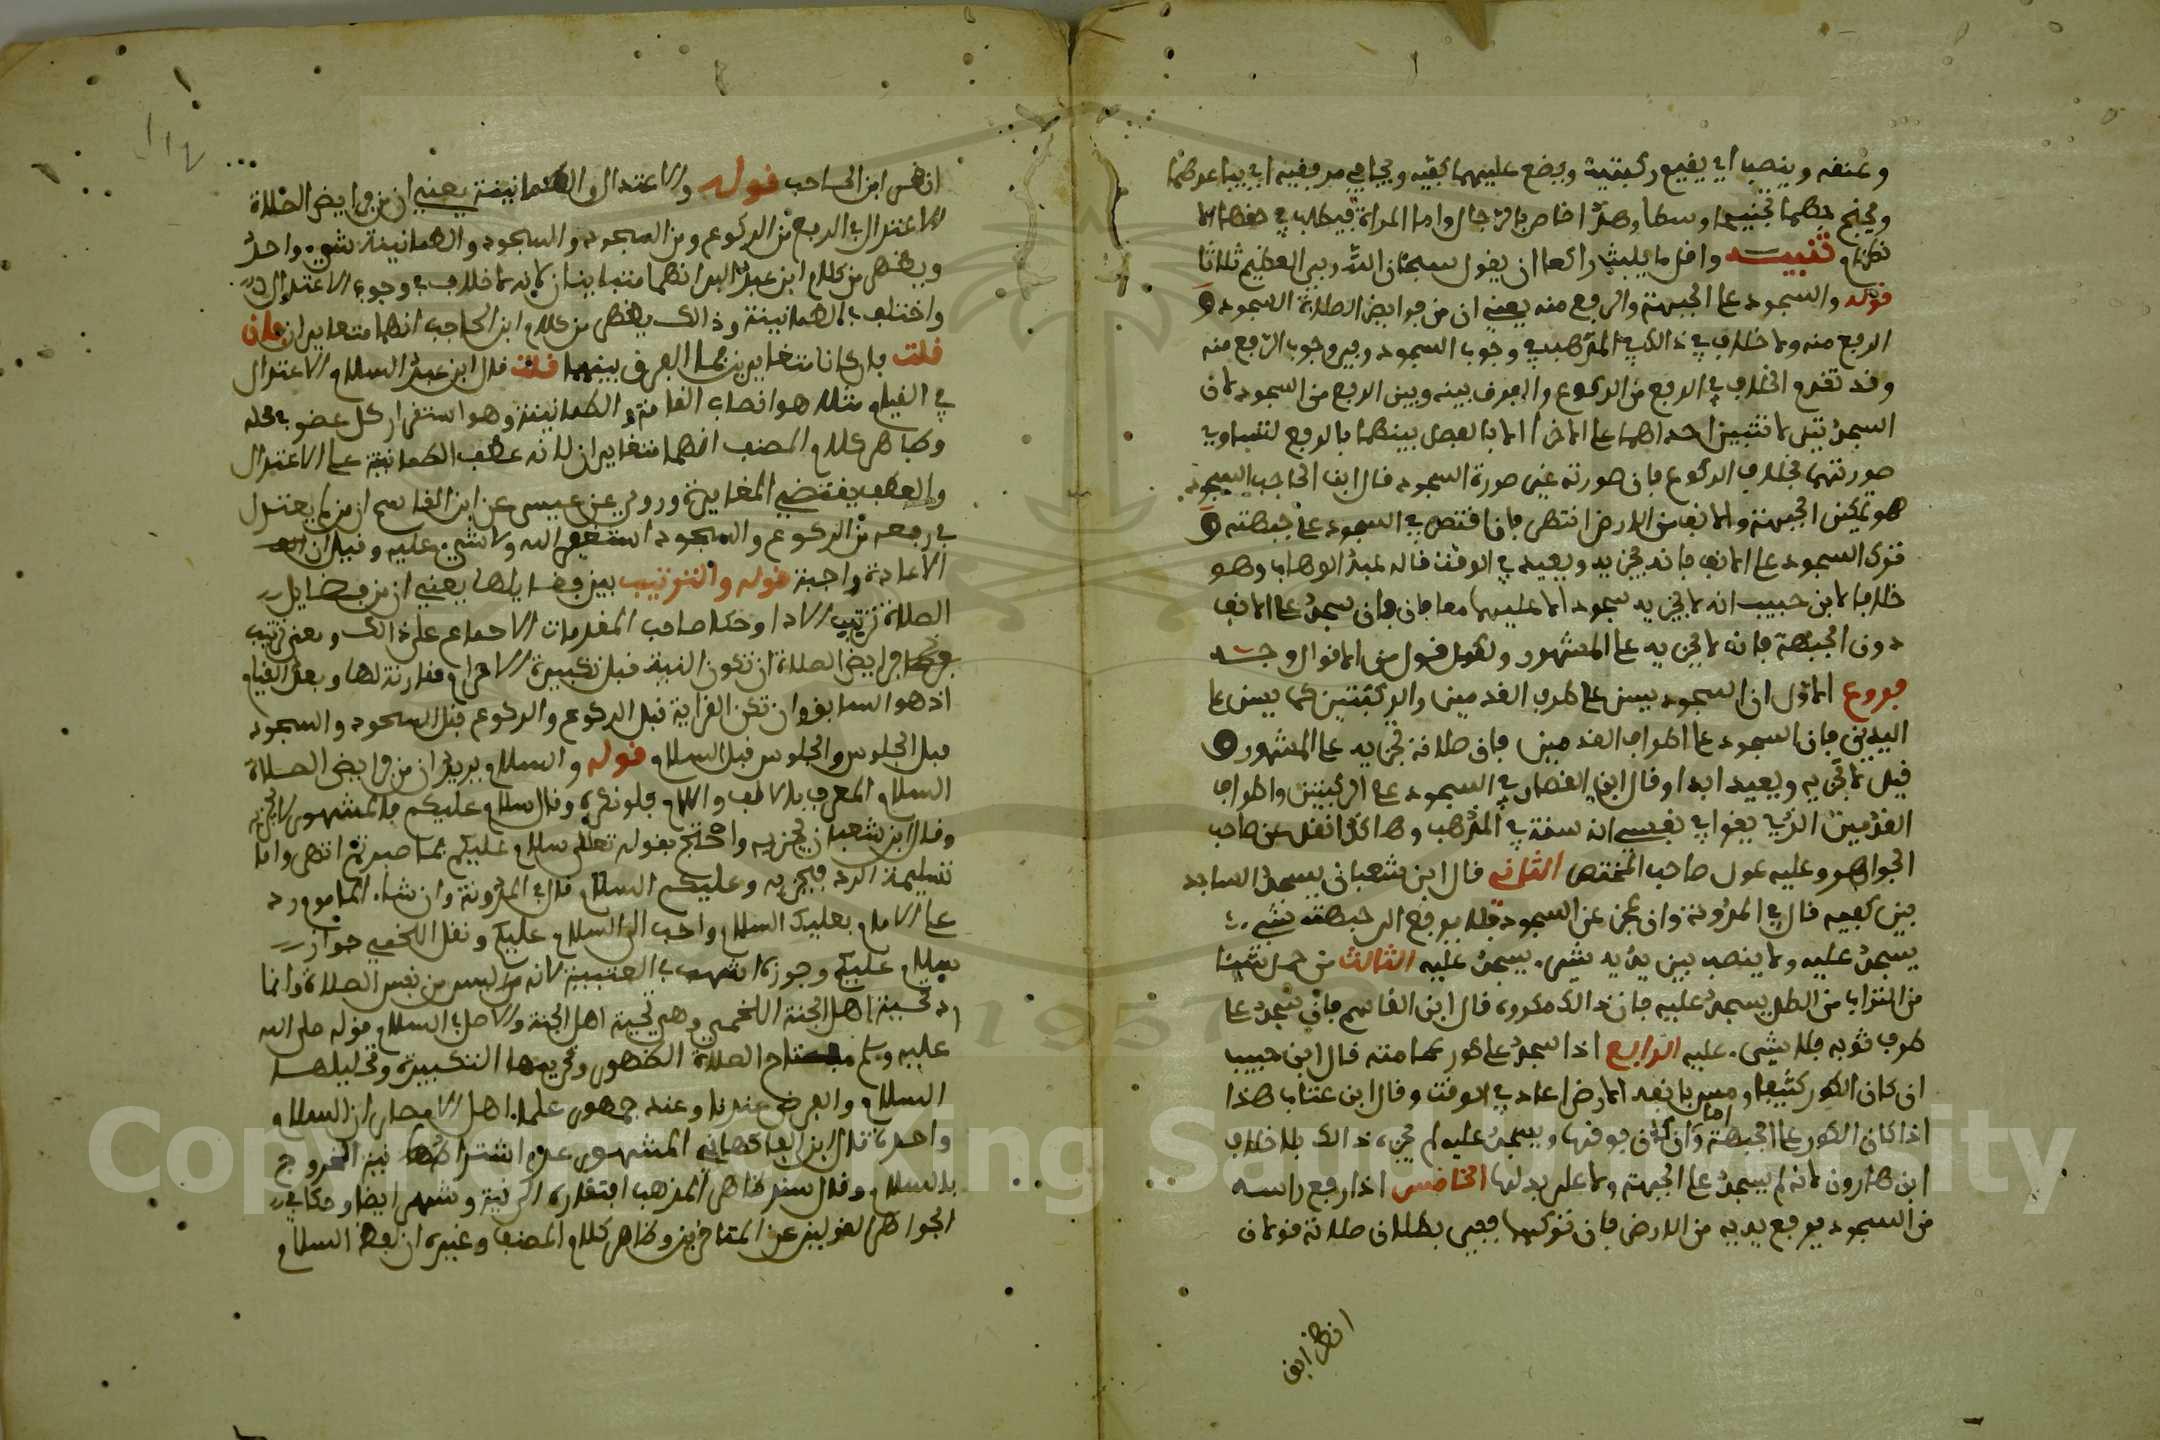 وعنقه وينصبا اي يقيم ركبتيه ويضع عليهما كفيه ويجافي مرفقيه اي يباعدهما
ويجنح بهما تجنيحا وسطا وهذا خاص بالرجال واما المراة فيطلب في حقها الا
نضمام تنبيه واقل ما يلبث راكعا ان يقول سبحان الله ربي العظيم ثلاثا
قوله والسجود على الجبهة والرفع منه يعني ان من فرايض الصلاة السجود و
الرفع منه ولا خلاف في ذالك في المذهب في وجوب السجود وفي وجوب الرفع منه
وقد تقدم الخلاف في الرفع من الركوع والفرق بينه وبين الرفع من السجود لان
السجدتين لا تتبين احداهما على الاخرا الا بالفصل بينهما بالرفع لتساوي
صورتهما بخلاف الركوع فان صورته غير صورة السجود قال ابن الحاجب السجود
هو تمكين الجبهة والانف من الارض انتهى فان اقتصر في السجود على جبهته و
ترك السجود على الانف فانه يجزيه ويعيد في الوقت قاله عبد الوهاب وهو
خلافا لابن حبيب انه لا يجزيه سجود الا عليهما معا فان كان سجد على الانف
دون الجبهة فانه لا يجزيه على المشهور ولكل قول من الاقوال وجه
فروع الاول ان السجود يسن على اطراف القدمين والركبتين كما يسن على
اليدين فان السجود على اطراف القدمين فان صلاته تجزيه على المشهور و
قيل لا تجزيه ويعيد ابدا وقال ابن القصار في السجود على الركبتين واطراف
القدمين الذي يقوا في نفسي انه سنة في المذهب وهاكذا نقل عن صاحب
الجواهر وعليه عول صاحب المختصر الثاني قال ابن شعبان يسجد الساجد
بين كفيه قال في المدونة وان عجز عن السجود فلا يرفع الى جبهته شيء
يسجد عليه ولا ينصب بين يديه شيء يسجد عليه الثالث من حمل شيئا
من التراب من الظل يسجد عليه فان ذالك مكروه قال ابن القاسم فان سجد على
طرف ثوبه فلا شيء عليه الرابع اذا سجد على كور عمامته قال ابن حبيب
ان كان الكور كثيفا ومس بانفه الارض اعاد في الوقت وقال ابن عتاب هذا
اذا كان الكور على الجبهة واما ان كان فوقها ويسجد عليه لم يجزه ذالك بلا خلاف
ابن هارون لانه لم يسجد على الجبهة ولا على بدلها الخامس اذا رفع راسه
من السجود يرفع يديه من الارض فان تركها ففي بطلان صلاته قولان
انظر ابن
انظر ابن الحاجب قوله والاعتدال والطمانينة يعني ان من فرايض الصلاة
الاعتدال في الرفع من الركوع ومن السجود والسجود والطمانينة شيء واحد
ويظهر من كلام ابن عبد البر انهما متباينان لانه لا خلاف في وجوب الاعتدال
واختلف في الطمانينة وذالك يظهر من كلام ابن الحاجب انهما متغايران فان
قلت فان كانا متغايرين فما الفرق بينهما قلت قال ابن عبد السلام الاعتدال
في القيام مثلا هو انصاب القامة والطمانينة وهو استقرار كل عضو في محله
وظاهر كلام المصنف انهما متغايران لانه عطف الطمانينة على الاعتدال
والعطف يقتضي المغايرة وروى عن عيسى عن ابن القاسم ان من لم يعتدل
في رفعه من الركوع والسجود استغفر الله ولا شيء عليه وقيل ان
الاعادة واجبة قوله والترتيب بين فضايلها يعني ان من فضايل
الصلاة ترتيب الادا وحكا صاحب المقدمات الاجماع على ذالك ومعنى ترتيب
فرايض الصلاة ان تكون النية قبل تكبيرة الاحرام مقارنة لها وبعد القيام
اذ هو السابق وان تكن القراية قبل الركوع والركوع قبل السجود والسجود
قبل الجلوس والجلوس قبل السلام قوله والسلام يريد ان من فرايض الصلاة
السلام المعرف بالالف واللام فلو نكره وقال سلام عليكم فالمشهور لا يجزيه
وقال ابن شعبان يجزيه واحتج بقوله تعالى سلام عليكم بما صبرتم انتهى واما
تسليمة الرد فيجزيه وعليكم السلام قال في المدونة وان شاء الماموم رد
على الامام بعليك السلام واحب الى السلام عليكم ونقل اللخمي جواز
سلام عليكم وجوزه اشهب في العتبية لانه من ليس من نفس الصلاة وانما
رد تحية اهل الجنة اللخمي وهي تحية اهل الجنة والاصل في السلام قوله صلى الله
عليه وسلم مفتاح الصلاة الطهور وتحريمها التكبيرة وتحليلها
السلام والفرض عندنا وعند جمهور علماء اهل الامصار ان السلام
واحدة قال ابن الفاكهاني المشهور عدم اشتراط نية الخروج
بالسلام وقال سند ظاهر المذهب افتقاره الى نية وشهر ايضا وحكا في
الجواهر القولين عن المتاخرين وظاهر كلام المصنف وغيره ان لفظ السلام
Copyright © King Saud University
1957